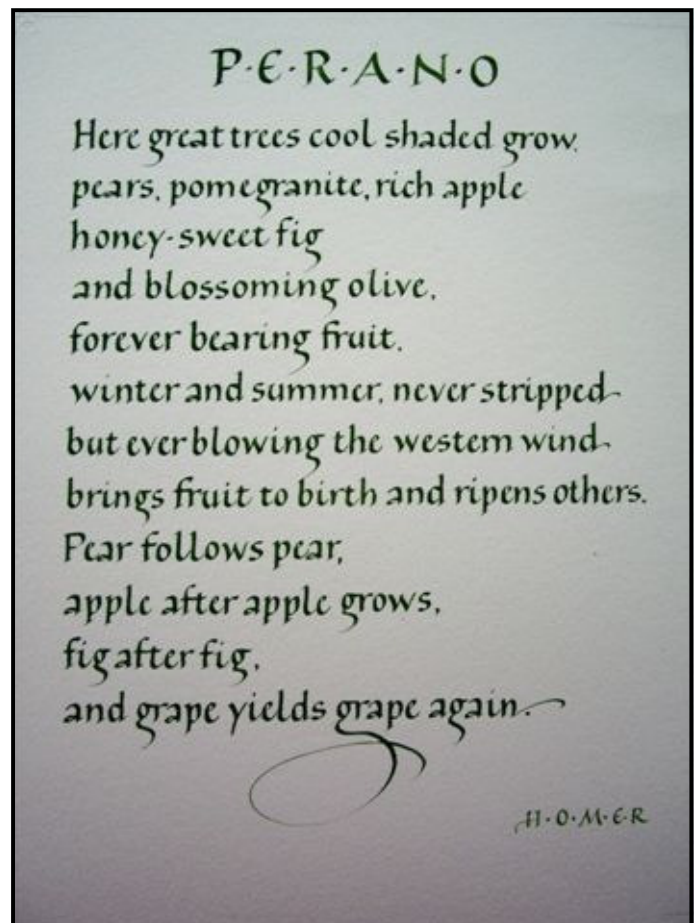 P·E·R·A·N·O
Here great trees cool shaded grow,
pears, pomegranite, rich apple
honey-sweet fig
and blossoming olive,
forever bearing fruit,
winter and summer, never stripped
but ever blowing the western wind
brings fruit to birth and ripens others.
Pear follows pear,
apple after apple grows,
fig after fig,
and grape yields grape again.
H·O·M·E·R